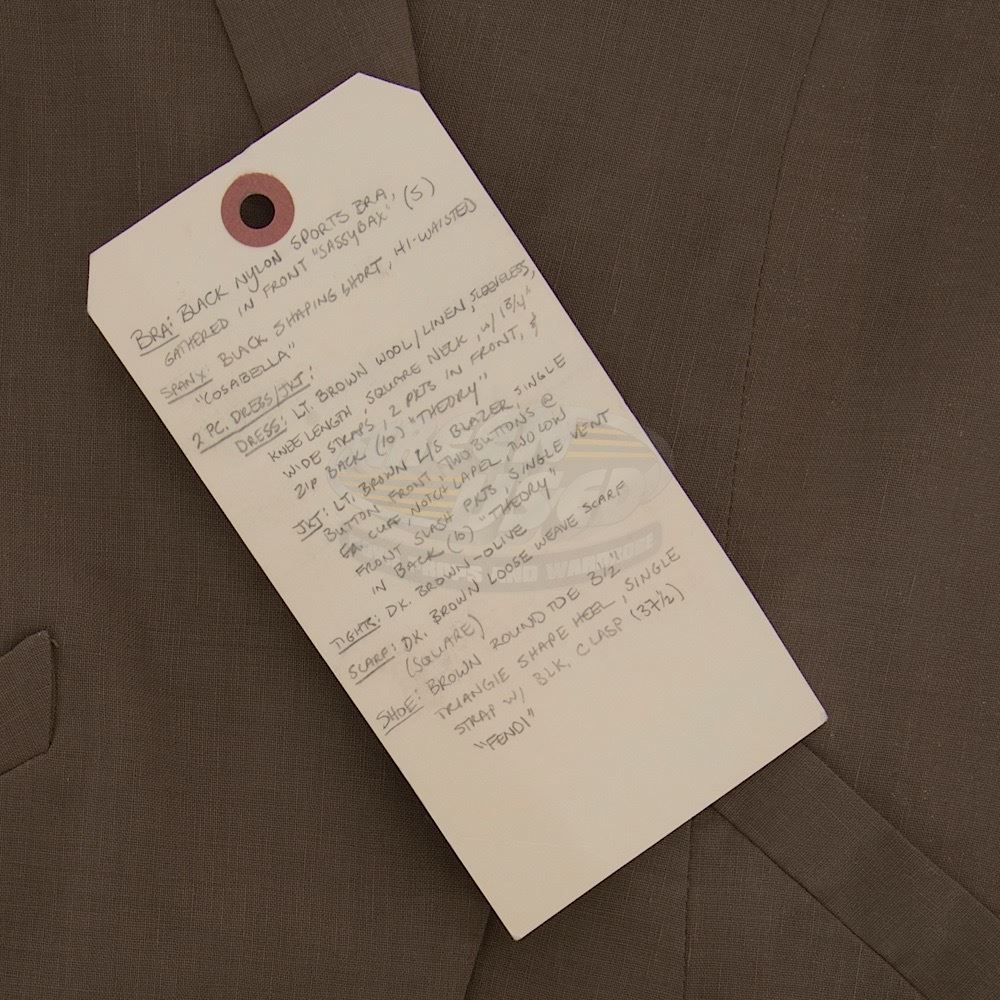 BRA: BLACK NYLON SPORTS BRA,
GATHERED IN FRONT "SASSYBAX" (S)
SPANX: BLACK SHAPING SHORT, HI-WAISTED
"COSABELLA"
2 PC. DRESS/JKT:
DRESS: LT. BROWN WOOL/LINEN, SLEEVELESS,
KNEE LENGTH, SQUARE NECK, W/ 1 3/4"
WIDE STRAPS, 2 PKTS IN FRONT, &
ZIP BACK (10) "THEORY"
JKT: LT. BROWN L/S BLAZER, SINGLE
BUTTON FRONT, TWO BUTTONS @
EA. CUFF NOTCH LAPEL, TWO LOW
FRONT SLASH PKTS SINGLE VENT
IN BACK (10) "THEORY"
TIGHTS: DK. BROWN-OLIVE
SCARF: DK. BROWN LOOSE WEAVE SCARF
(SQUARE)
SHOE: BROWN ROUND TOE 3 1/2"
TRIANGLE SHAPE HEEL, SINGLE
STRAP W/ BLK. CLASP (37 1/2)
"FENDI"
USED
PROPS AND WARDROBE